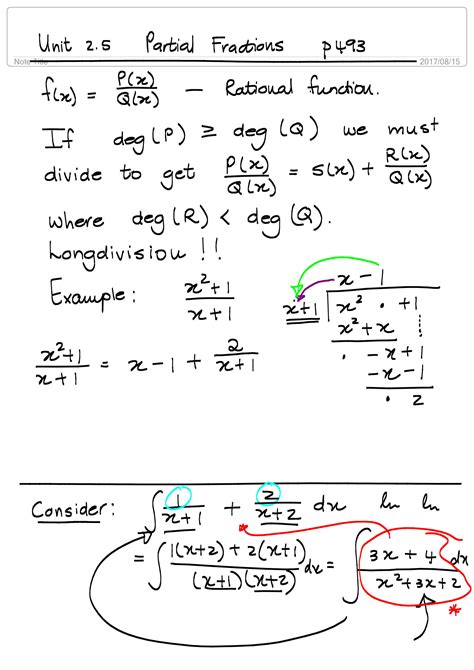 Unit 2.5 Partial Fractions p493
Note Title 2017/08/15
f(x) = P(x)/Q(x) — Rational function.
If deg(P) ≥ deg(Q) we must
divide to get P(x)/Q(x) = S(x) + R(x)/Q(x)
where deg(R) < deg(Q).
Longdivision !!
Example: x²+1/x+1
x - 1
x+1 x² · +1
x²+x
· -x+1
-x-1
· 2
x²+1/x+1 = x-1 + 2/x+1
Consider: ∫ 1/x+1 + 2/x+2 dx ln ln
= ∫ 1(x+2) + 2(x+1)/(x+1)(x+2) dx = ∫ 3x + 4/x²+3x+2 dx
* *